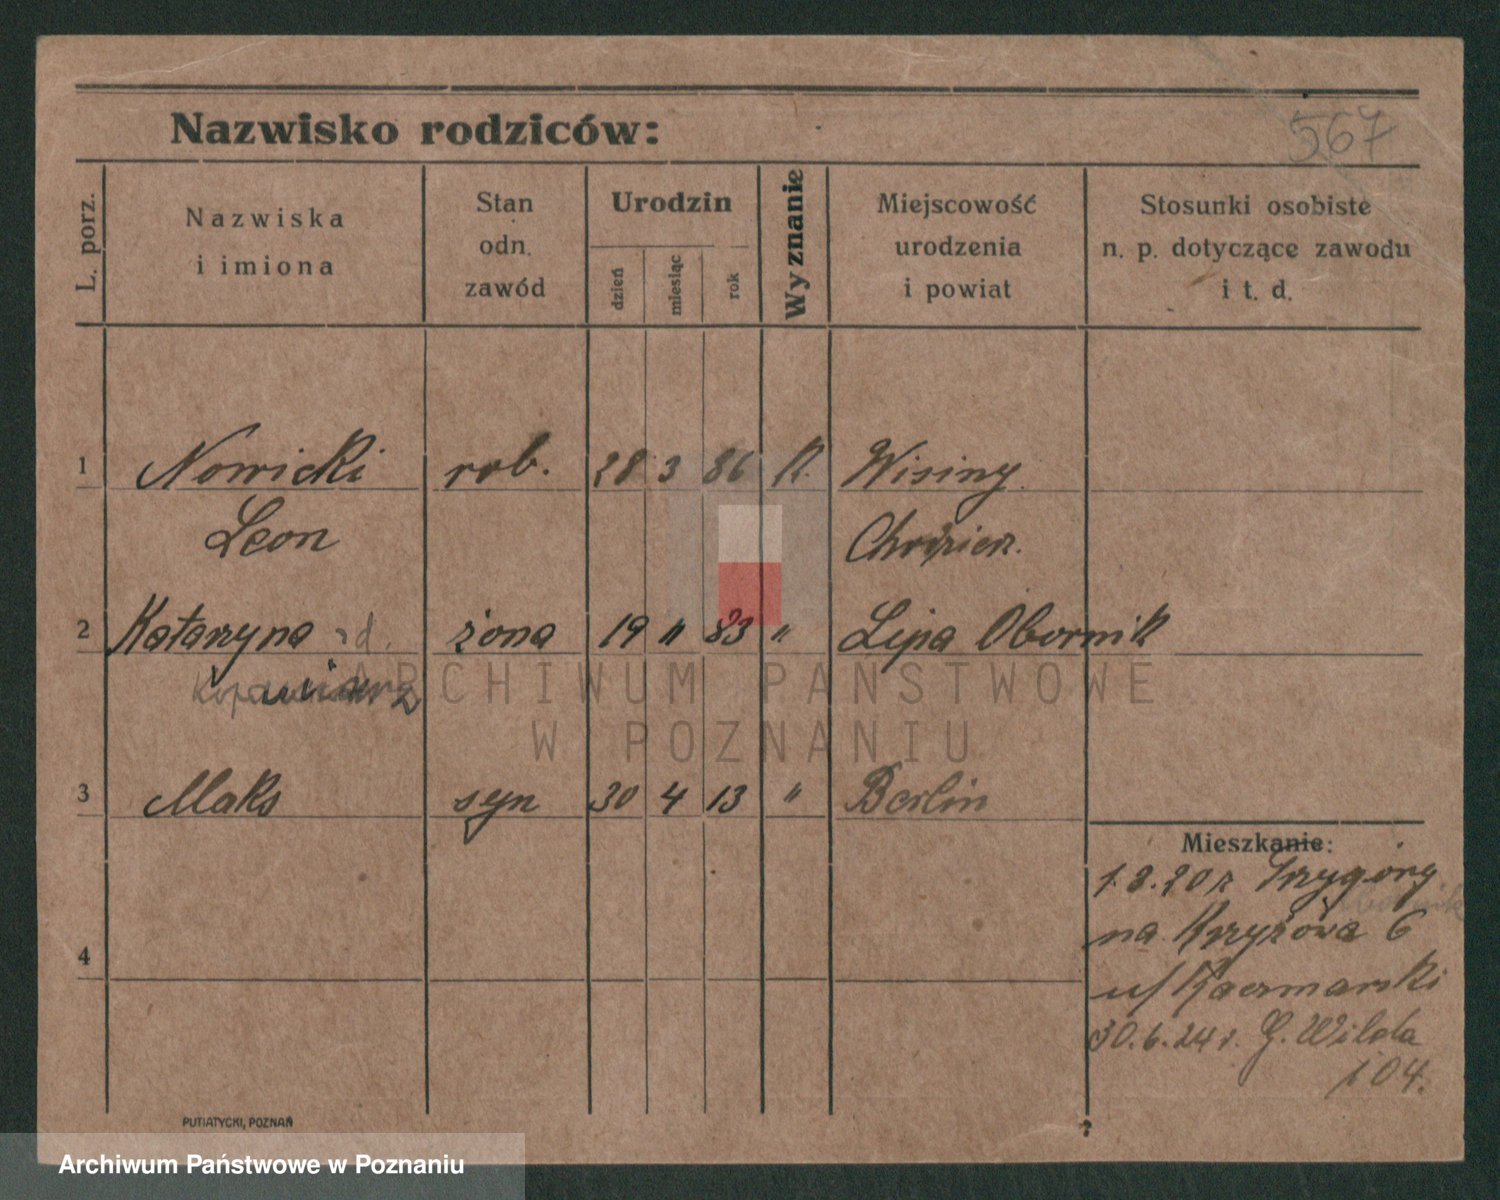 567
Nazwisko rodziców:
L. porz.
Nazwiska
i imiona
Stan
odn.
zawód
Urodzin
dzień
miesiąc
rok
Wyznanie
Miejscowość
urodzenia
i powiat
Stosunki osobiste
n. p. dotyczące zawodu
i t. d.
1 Nowicki rob. 28 3 86 K. Wisiny
Leon Chodzież.
2 Katarzyna żona 19 " 83 " Lipa Obornik
3 Maks syn 30 4 13 " Berlin
Mieszkanie:
1.8.20 z
na Krzyżowa 6
u/ Kaczmarski
4
30.6.24 r. G. Wilda
104.
PUTIATYCKI, POZNAŃ
ARCHIWUM PAŃSTWOWE
W POZNANIU
Archiwum Państwowe w Poznaniu